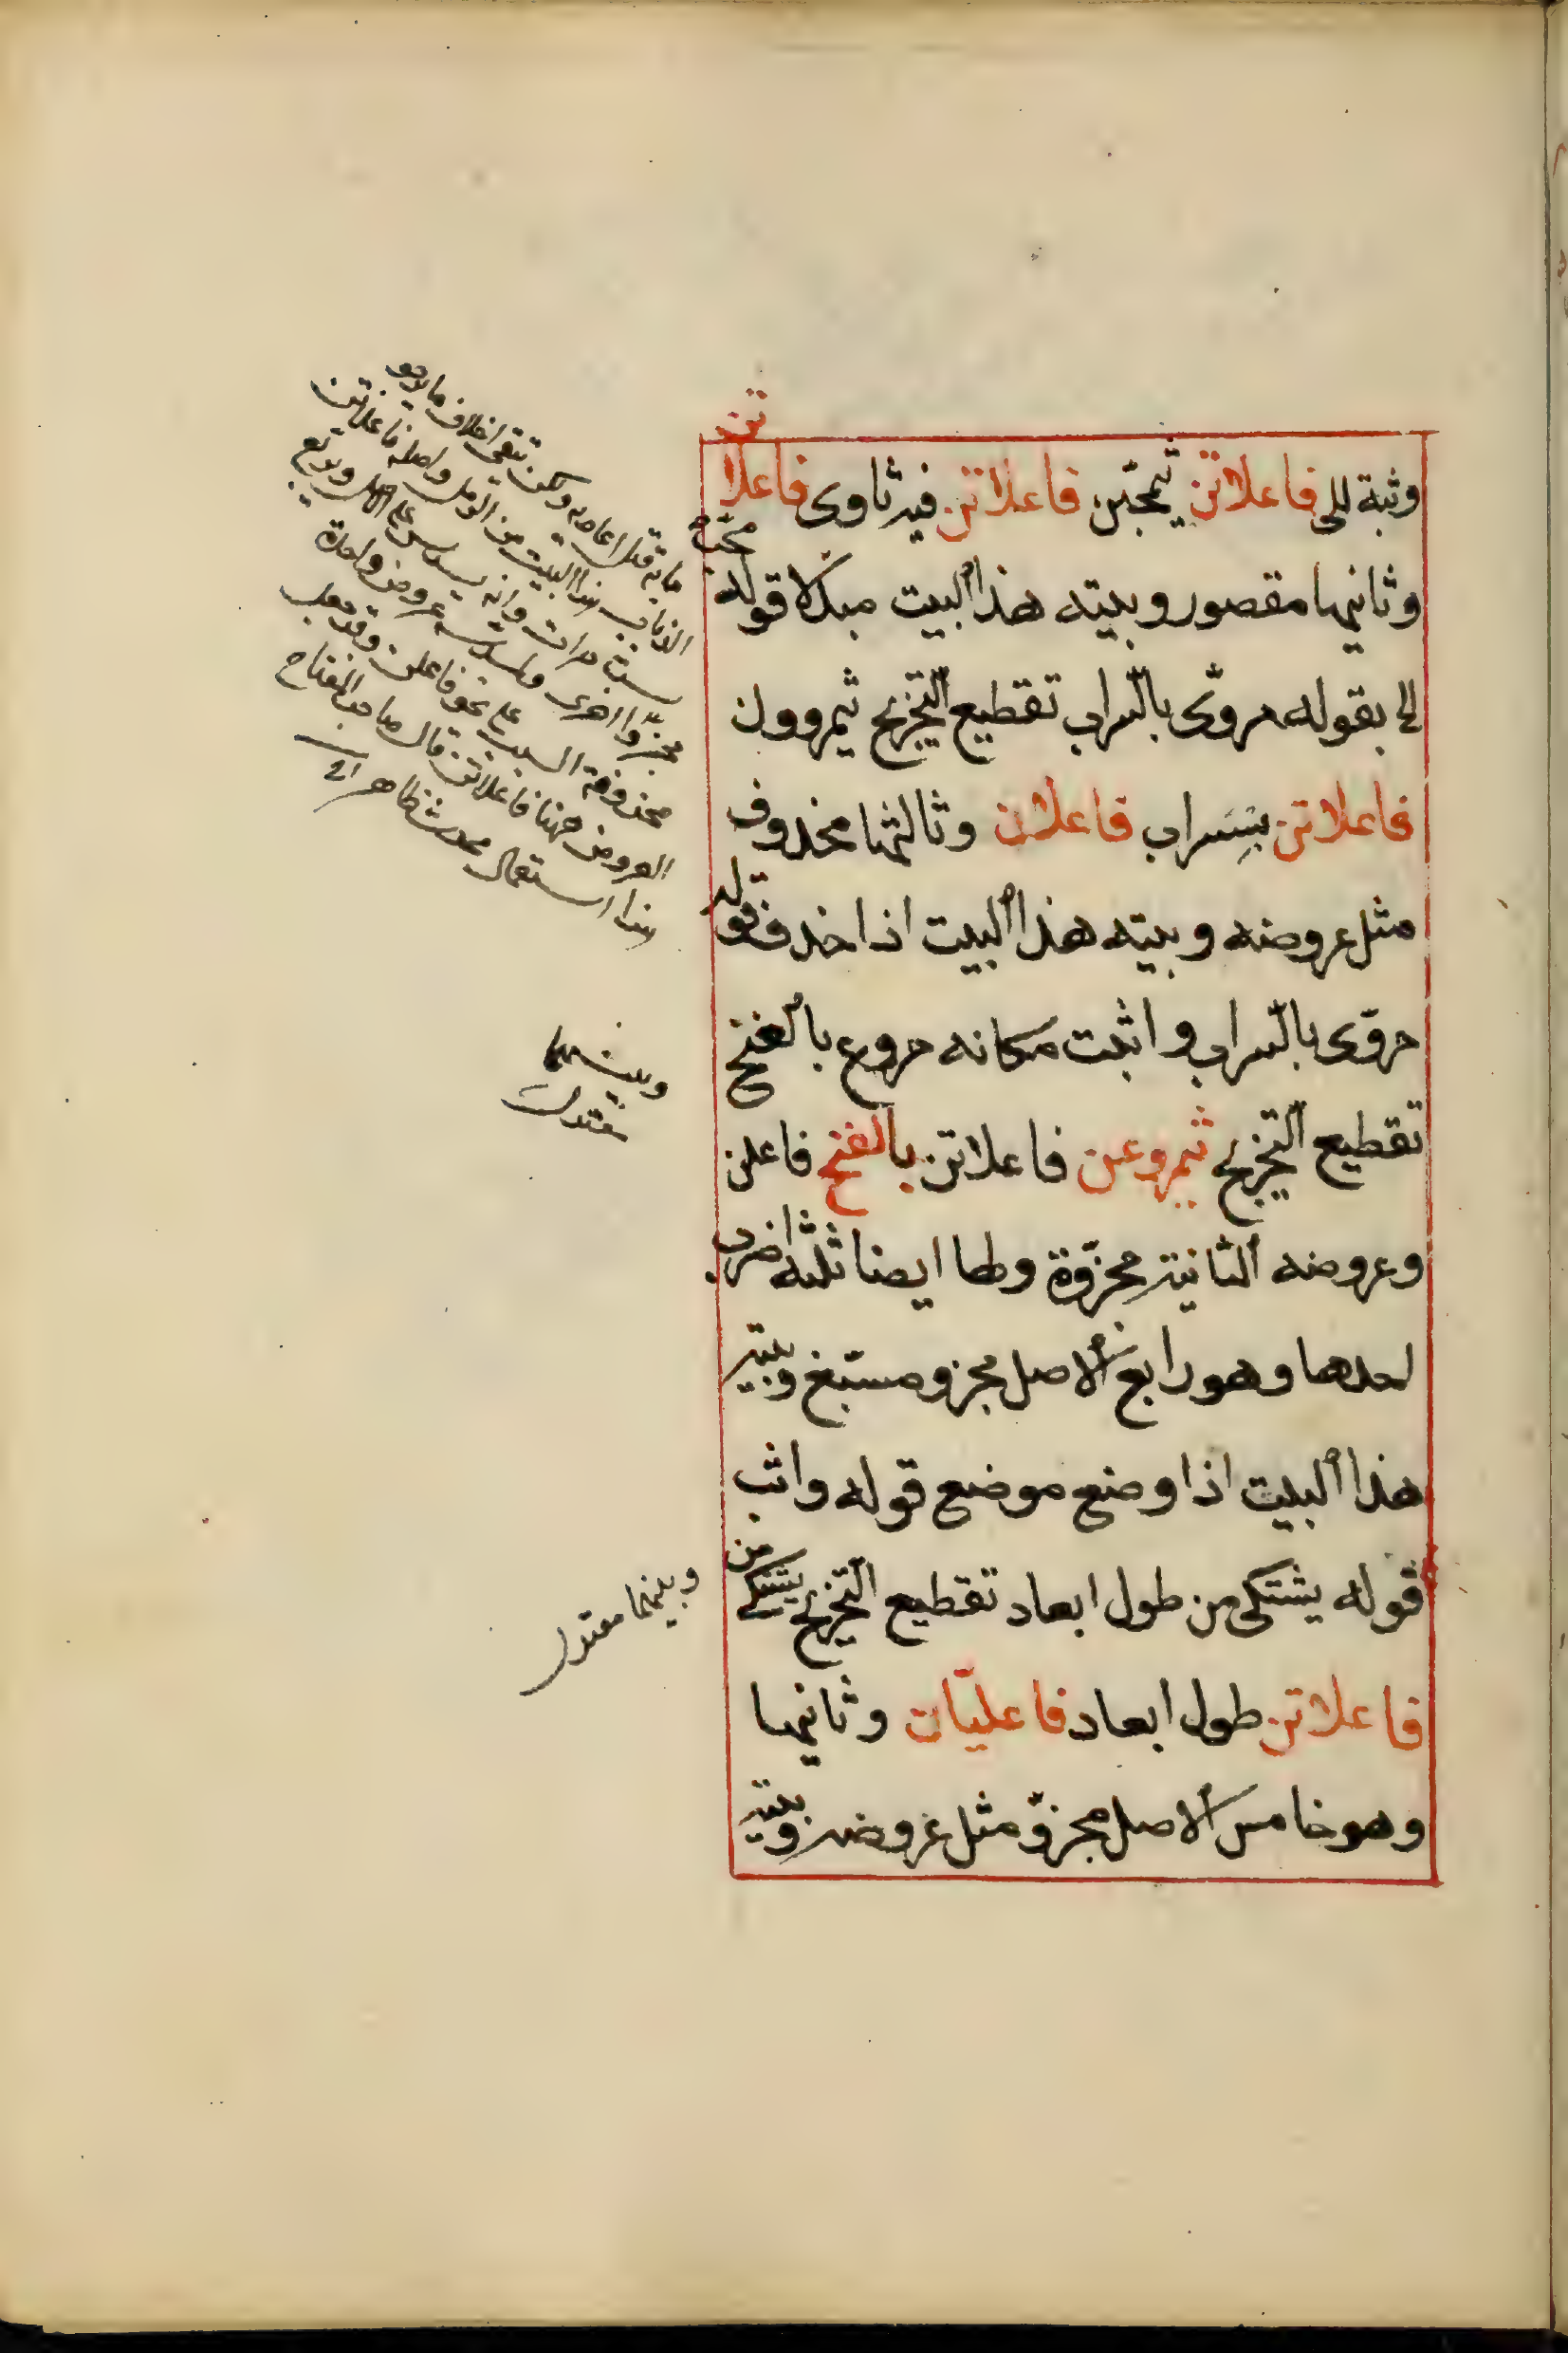 وثبة للى فاعلاتن ثيمحبّن فاعلاتن فيه ثاوى فاعلاتن
وثانيها مقصور وبيته هذا البيت مبدلا قوله محبّ
لح بقوله مروّى بالسّراب تقطيع التخريج ثيمروون
فاعلاتن بسسراب فاعلان وثالثها محذوف
مثل عروضه وبيته هذا البيت اذا حذف قوله
مروّى بالسّراب واثبت مكانه مروع بالفنخ
تقطيع التخريج ثيمروعن فاعلاتن بالفنخ فاعلن
وعروضه الثانية مجزوّة ولها ايضا ثلثة اضرب
احدها وهو رابع الاصل مجزو مسبّغ وبيته
هذا البيت اذا وضع موضع قوله واثب
قوله يشتكى من طول ابعاد تقطيع التخريج يشتكى من
فاعلاتن طول ابعاد فاعليّان وثانيها
وهو خامس الاصل مجزوّ مثل عروضه وبيته
هذا البيت من الرمل واصله فاعلاتن
ست مرات وانه يسدس على الاصل ويربع
مجزوّا اخرى ولمسدسه عروض واحدة
محذوفة السبب على نحو فاعلن وقد
العروض ههنا فاعلاتن قال صاحب المفتاح
هذا استعمال محدث
وبينهما
معتدل
وبينهما معتدل